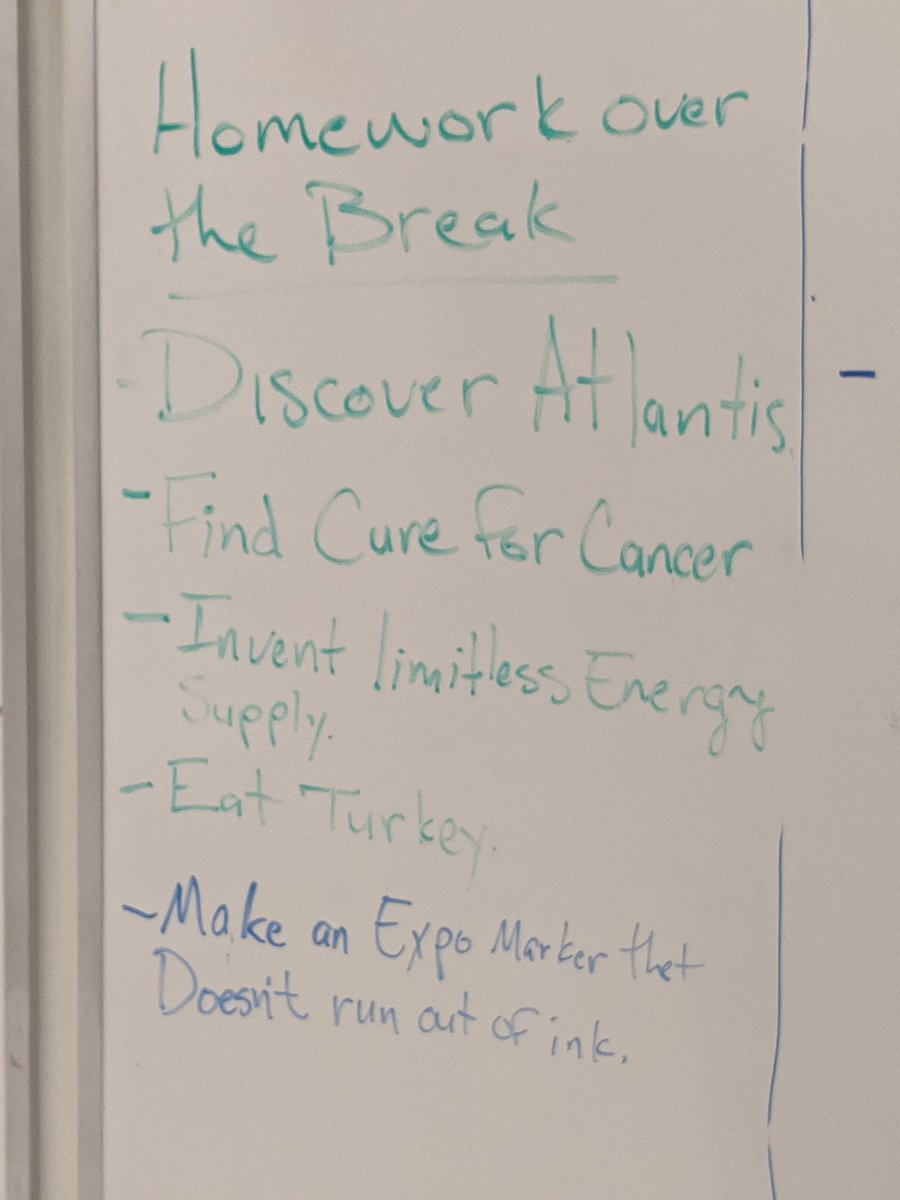 Homework over
the Break
- Discover Atlantis.
- Find Cure for Cancer
- Invent limitless Energy
Supply.
- Eat Turkey.
- Make an Expo Marker that
Doesn't run out of ink.